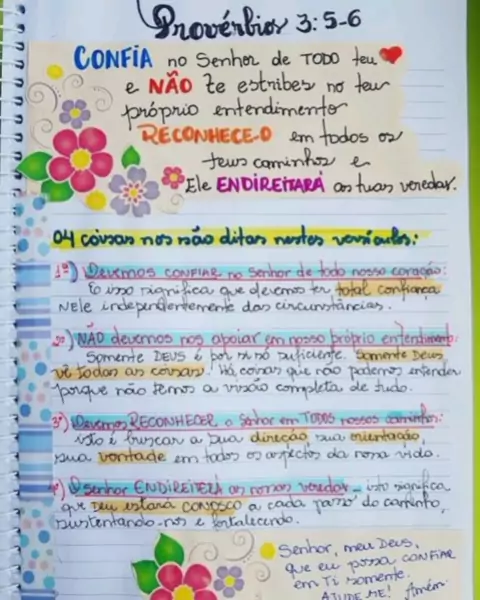 Provérbios 3:5-6
CONFIA no Senhor de TODO teu ❤
e NÃO te estribes no teu
próprio entendimento
RECONHECE-O em todos os
teus caminhos e
Ele ENDIREITARÁ as tuas veredas.
04 coisas nos são ditas nestes versículos:
1º) Devemos CONFIAR no Senhor de todo nosso coração:
E isso significa que devemos ter total confiança
NELE independentemente das circunstâncias.
2º) NÃO devemos nos apoiar em nosso próprio entendimento:
Somente DEUS é por si só suficiente. Somente Deus
vê todas as coisas! Há coisas que não podemos entender
porque não temos a visão completa de tudo.
3º) Devemos RECONHECER o Senhor em TODOS nossos caminhos:
isto é buscar a sua direção, sua orientação,
sua vontade em todos os aspectos da nossa vida.
4º) O Senhor ENDIREITARÁ as nossas veredas - isto significa
que Deus estará CONOSCO a cada passo do caminho,
sustentando-nos e fortalecendo.
Senhor, meu Deus,
que eu possa CONFIAR
em Ti somente.
AJUDE-ME! Amém